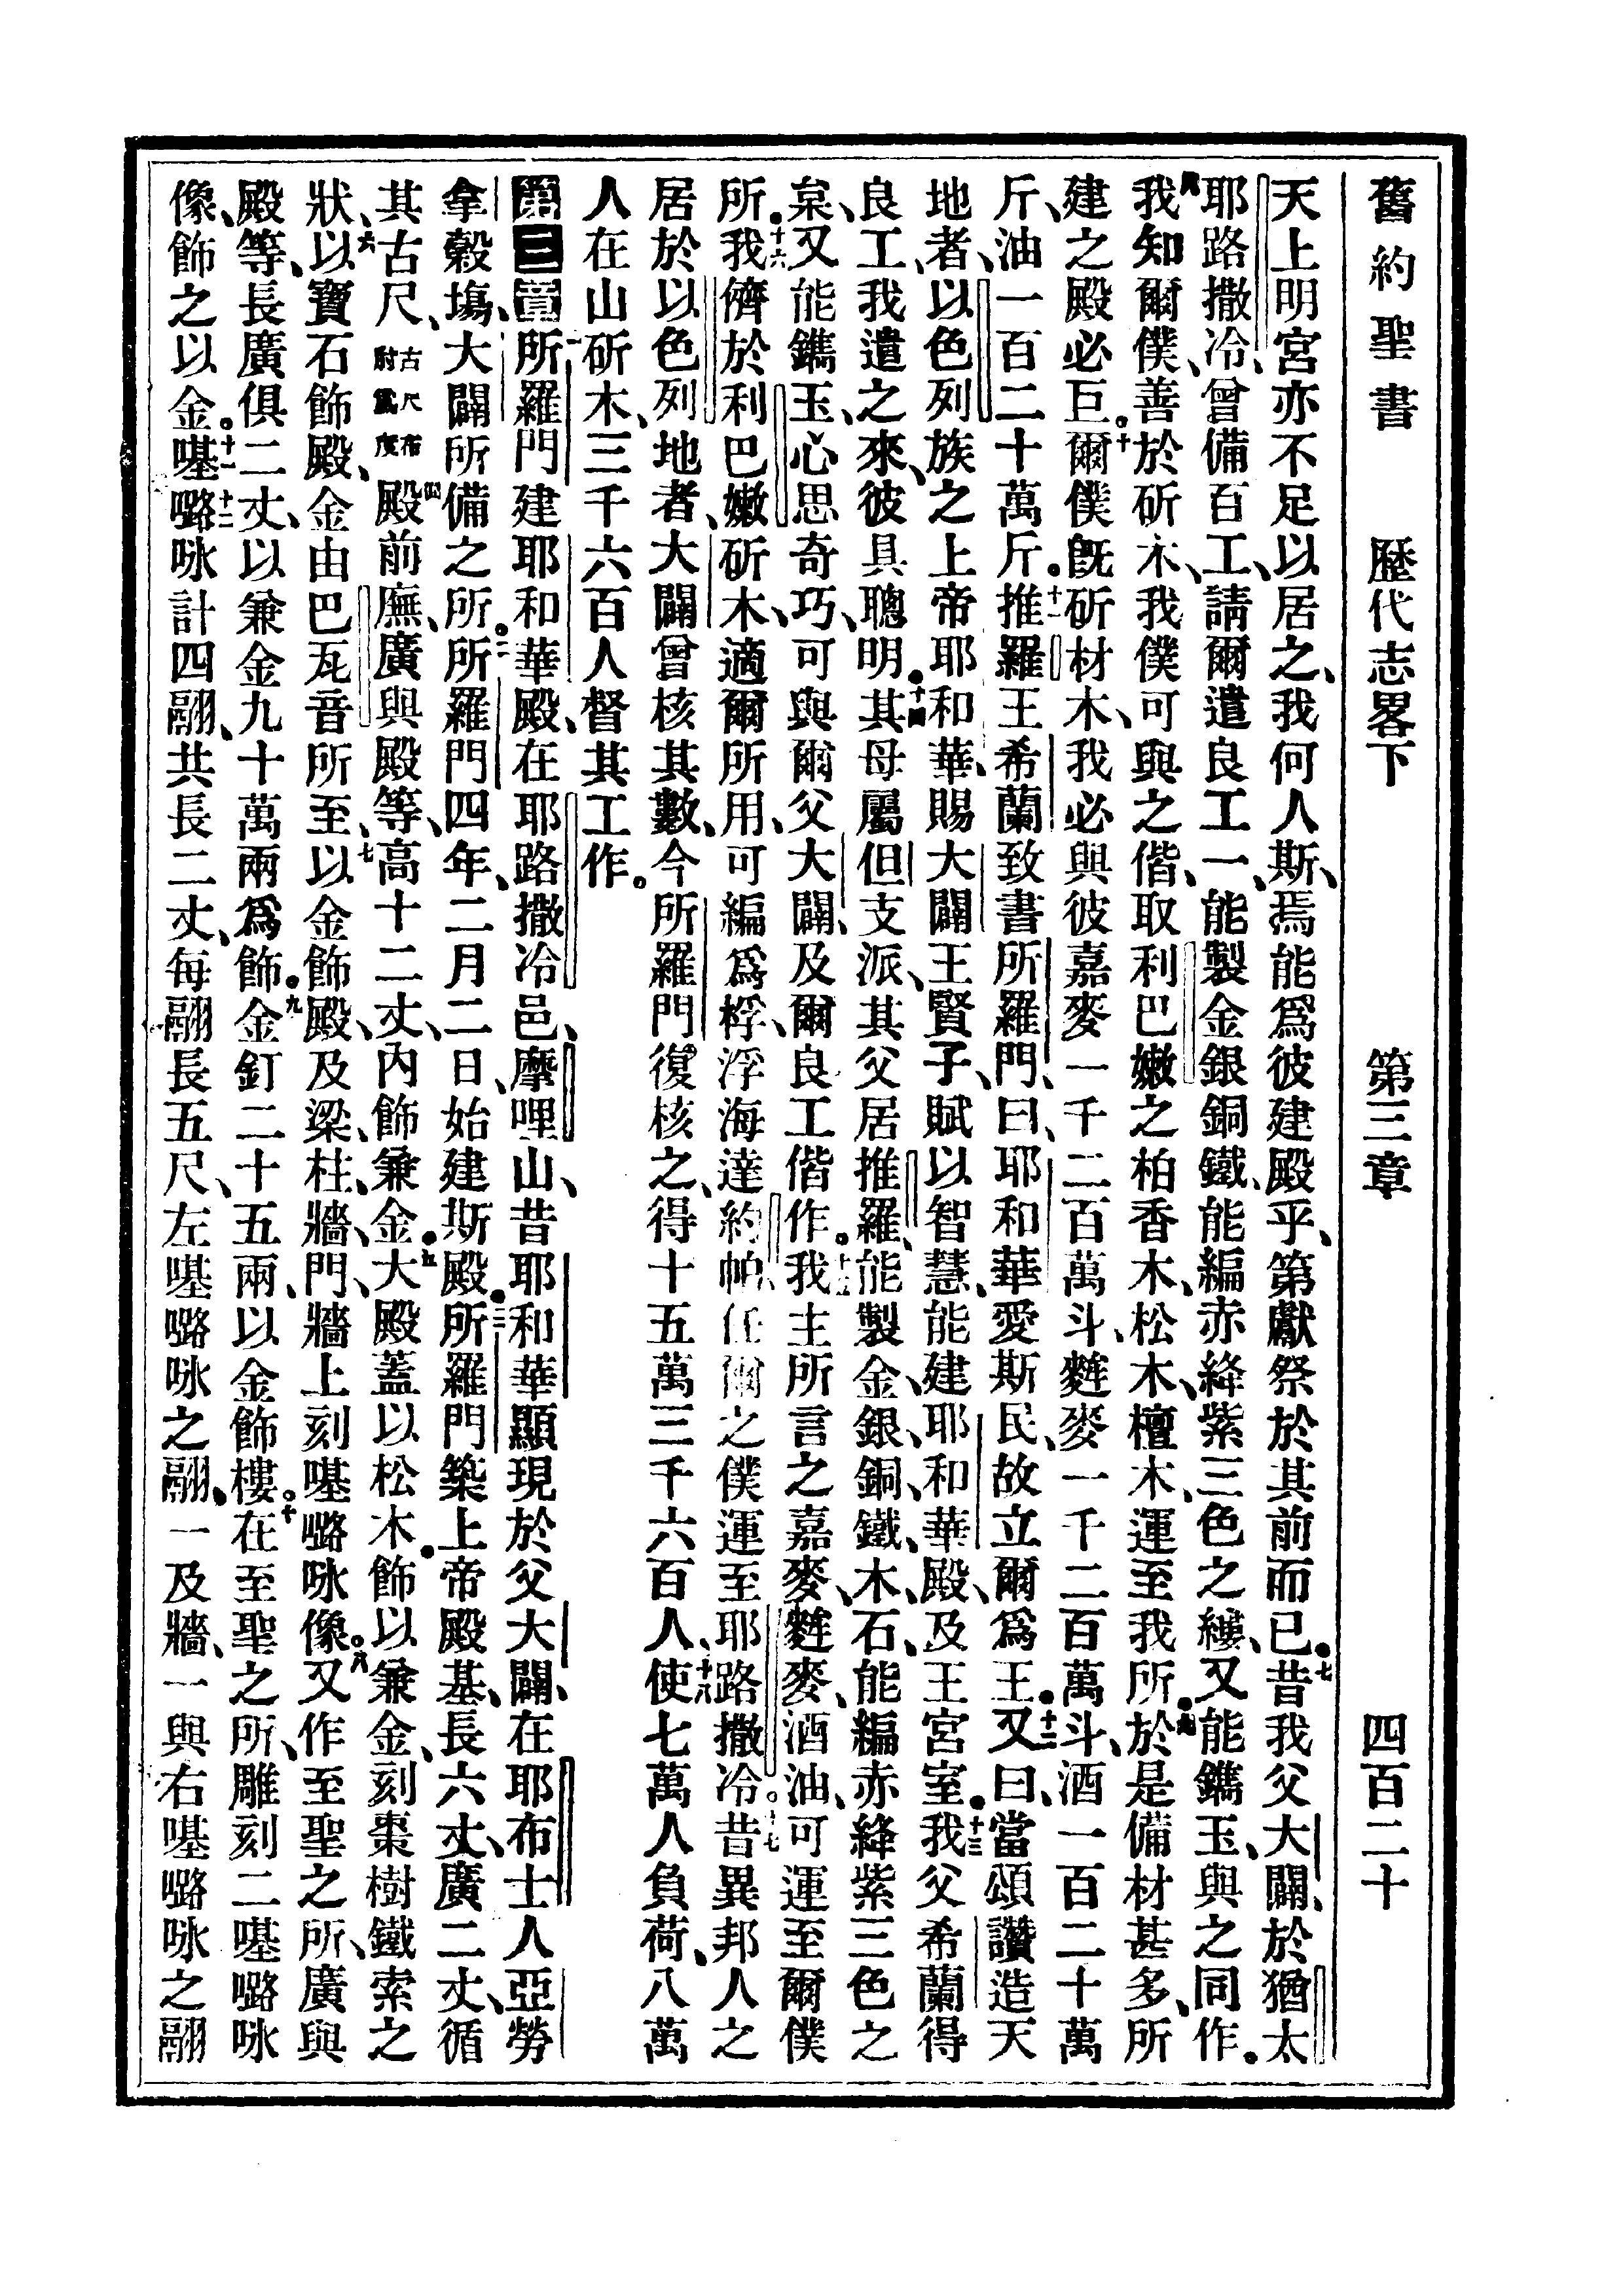 舊約聖書 歷代志畧下 第三章 四百二十
天上明宮亦不足以居之、我何人斯、焉能爲彼建殿乎、第獻祭於其前而已。七昔我父大闢、於猶太
耶路撒冷、曾備百工、請爾遣良工一、能製金銀銅鐵、能編赤絳紫三色之縷、又能鐫玉、與之同作。
八我知爾僕、善於斫木、我僕可與之偕、取利巴嫩之柏香木、松木、檀木、運至我所。九於是備材甚多、所
建之殿必巨。十爾僕旣斫材木、我必與彼嘉麥一千二百萬斗、麰麥一千二百萬斗、酒一百二十萬
斤、油一百二十萬斤。十一推羅王希蘭致書所羅門、曰、耶和華愛斯民、故立爾爲王。十二又曰、當頌讚造天
地者、以色列族之上帝耶和華、賜大闢王賢子、賦以智慧、能建耶和華殿、及王宮室。十三我父希蘭得
良工、我遣之來、彼具聰明。十四其母屬但支派、其父居推羅、能製金、銀、銅、鐵、木、石、能編赤絳紫三色之
枲、又能鐫玉、心思奇巧、可與爾父大闢、及爾良工偕作。十五我主所言之嘉麥、麰麥、酒油、可運至爾僕
所。十六我儕於利巴嫩斫木、適爾所用、可編爲桴、浮海達約帕、任爾之僕運至耶路撒冷。十七昔異邦人之
居於以色列地者、大闢曾核其數、今所羅門復核之、得十五萬三千六百人、十八使七萬人負荷、八萬
人在山斫木、三千六百人督其工作。
第三章一所羅門建耶和華殿、在耶路撒冷邑、摩哩山、昔耶和華顯現於父大闢、在耶布士人亞勞
拿穀塲、大闢所備之所。二所羅門四年、二月二日、始建斯殿。三所羅門築上帝殿基、長六丈、廣二丈、循
其古尺、古尺希肘爲度四殿前廡、廣與殿等、高十二丈、內飾兼金。五大殿蓋以松木。飾以兼金、刻棗樹鐵索之
狀、六以寶石飾殿、金由巴瓦音所至、七以金飾殿、及梁、柱、牆、門、牆上刻𠹌㗉咏像。八又作至聖之所、廣與
殿等、長廣俱二丈、以兼金九十萬兩爲飾。九金釘二十五兩、以金飾樓。十在至聖之所、雕刻二𠹌㗉咏
像、飾之以金。十一𠹌十二㗉咏計四翮、共長二丈、每翮長五尺、左𠹌㗉咏之翮、一及牆、一與右𠹌㗉咏之翮